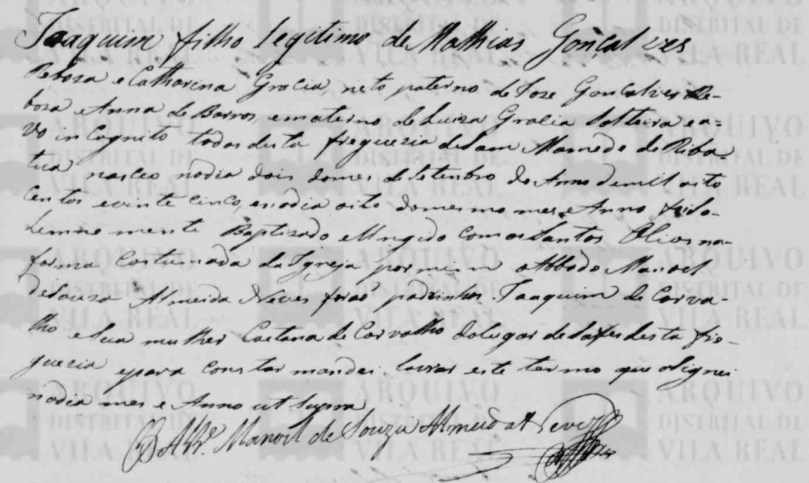 Joaquim filho legitimo de Mathias Goncalves
Reboza e Catharina Gracia, neto paterno de Joze Goncalves Re-
boza e Anna de Barros, ematerno de Luiza Gracia solteira ea-
vo incognito todos desta freguezia desam Mamede de Riba
tua, nasceo nodia dois domes deSetembro do Anno demil oito
centos evinte cinco, enodia oito domesmo mes e Anno foi so-
lemne mente Baptizado eUngido comos Santos Olios na-
forma costumada da Igreja por mim oAbbade Manoel
deSouza Almeida Neves foraõ padrinhos Joaquim de Carva-
lho esua mulher Caetana de Carvalho do lugar de Safres desta fre-
guezia epara constar mandei lavrar este termo que asignei
nodia mes e Anno ut supra
O Abb.e Manoel de Souza Almeida Neves
ARQUIVO
DISTRITAL DE
VILA REAL